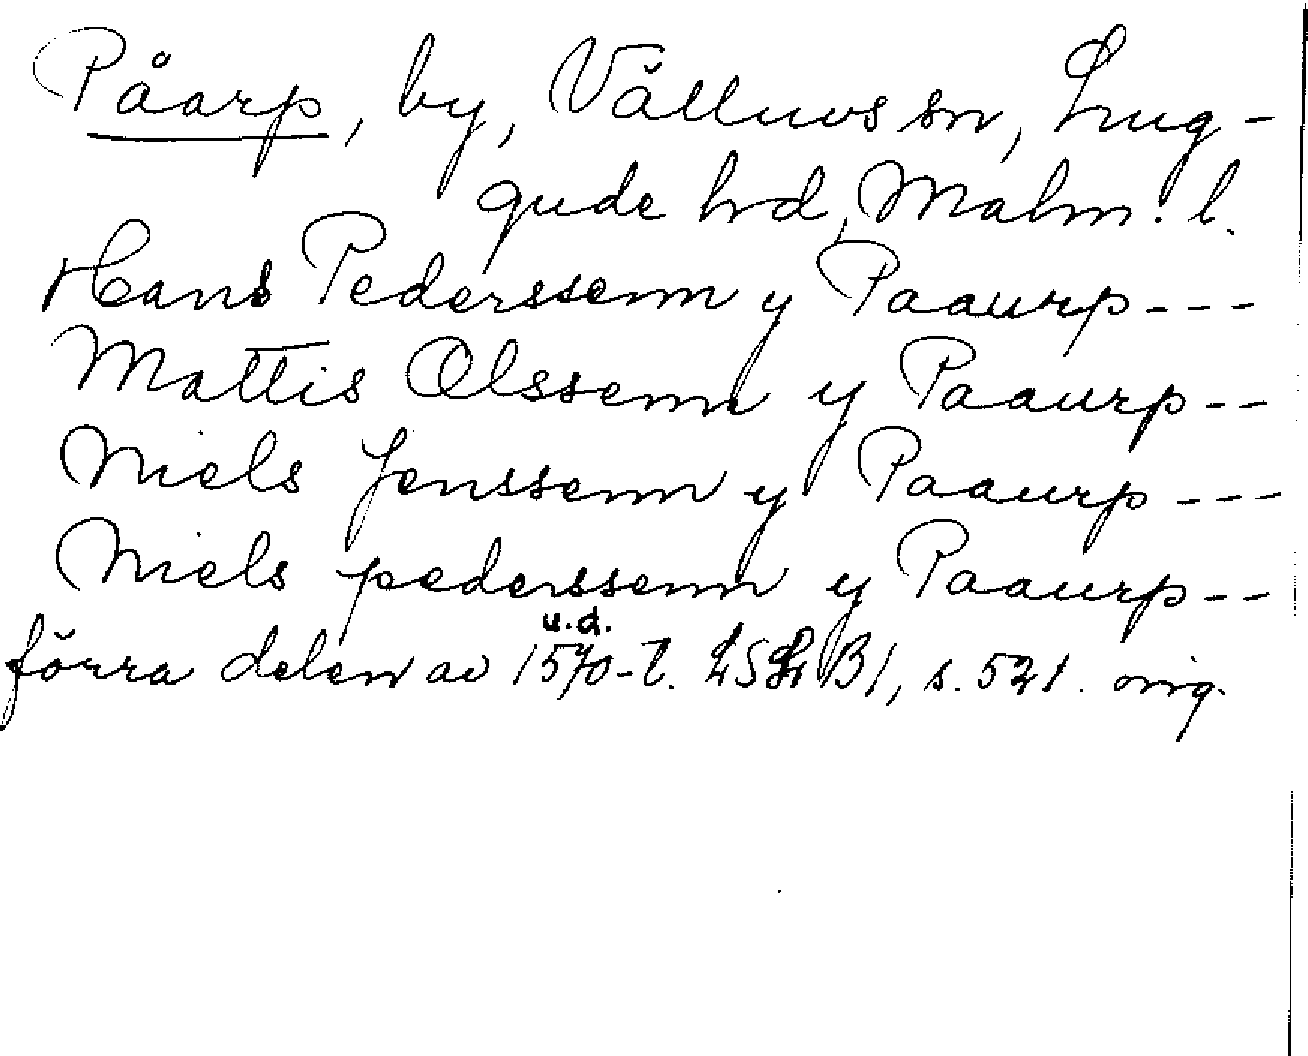 Påarp, by, Välluvs sn, Lug-
gude hrd, Malm. l.
Hans Pederssenn y Paaurp---
Mattis Olssenn y Paaurp--
Niels Jenssenn y Paaurp---
Niels pederssenn y Paaurp--
u.d.
förra delen av 1570-t. LSLr B1, s. 521. orig.